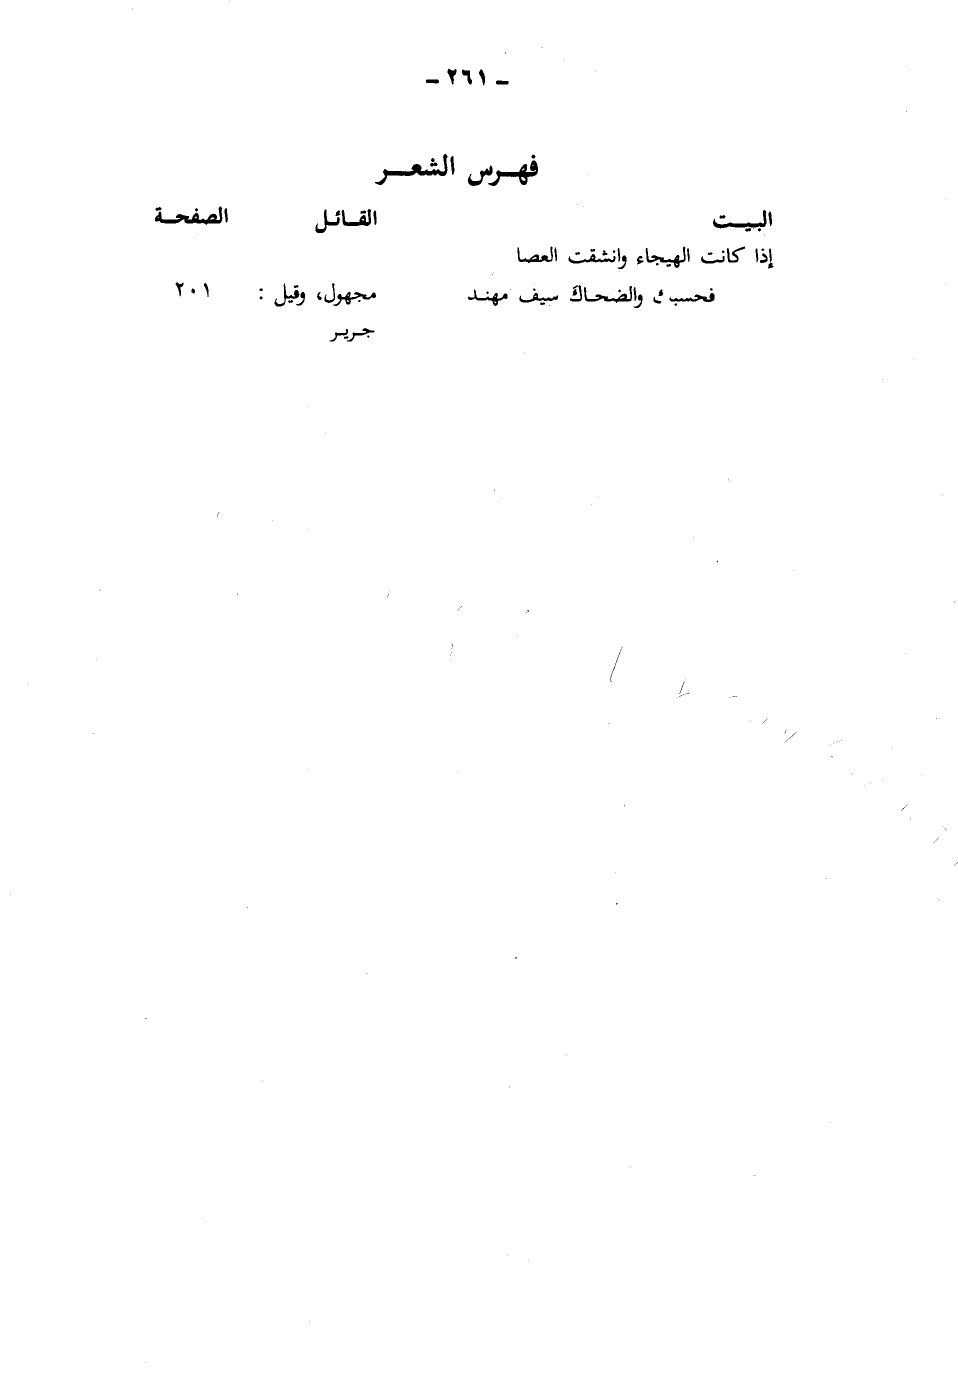 ـ ٢٦١ ـ
فهـرس الشعـر
البيـت القـائـل الصفحـة
إذا كانت الهيجاء وانشقت العصا
فحسبك والضحاك سيف مهند مجهول، وقيل : ٢٠١
جرير